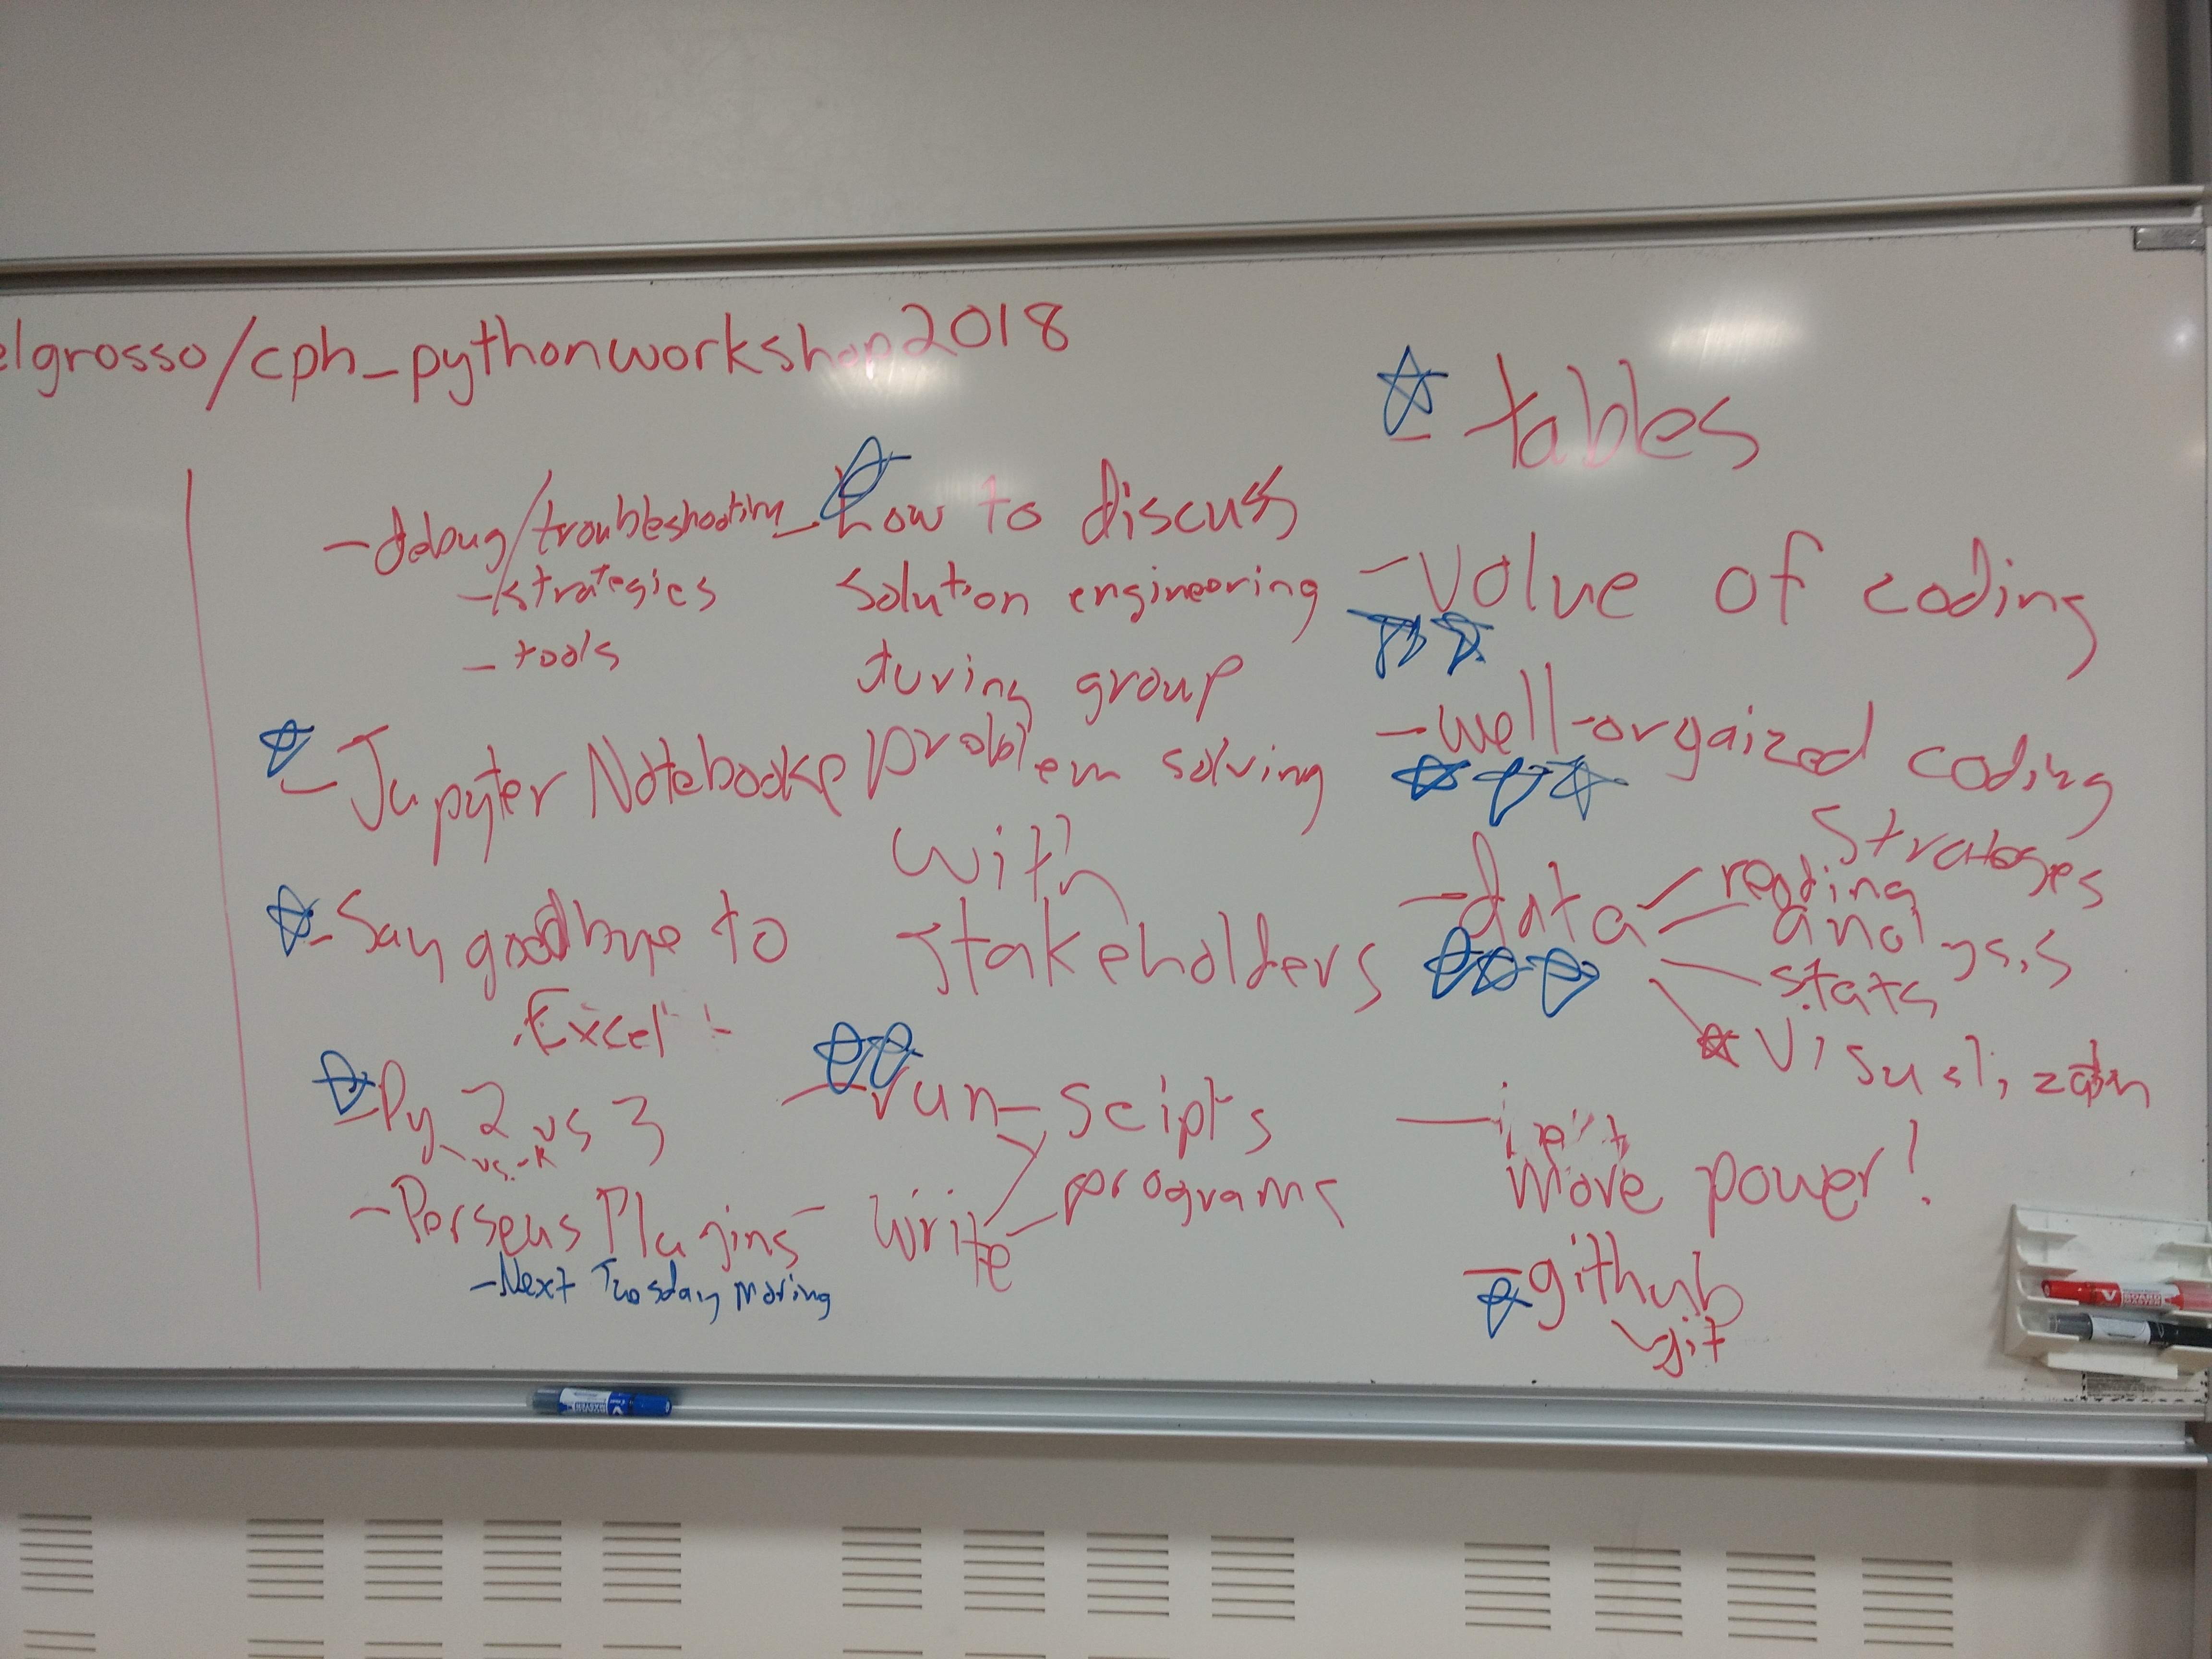 elgrosso/cph_pythonworkshop2018
- debug/troubleshooting
- strategies
- tools
- Jupyter Notebook
- Say goodbye to
Excel
- Py 2 vs 3
vs. R
- Perseus Plugins
- Next Tuesday Moring
- how to discuss
solution engineering
during group
problem solving
with
stakeholders
- run - scipts
- write - programs
- tables
- value of coding
- well-orgaized coding
strateges
- data
reading
analysis
stats
visualization
more power!
- github
git